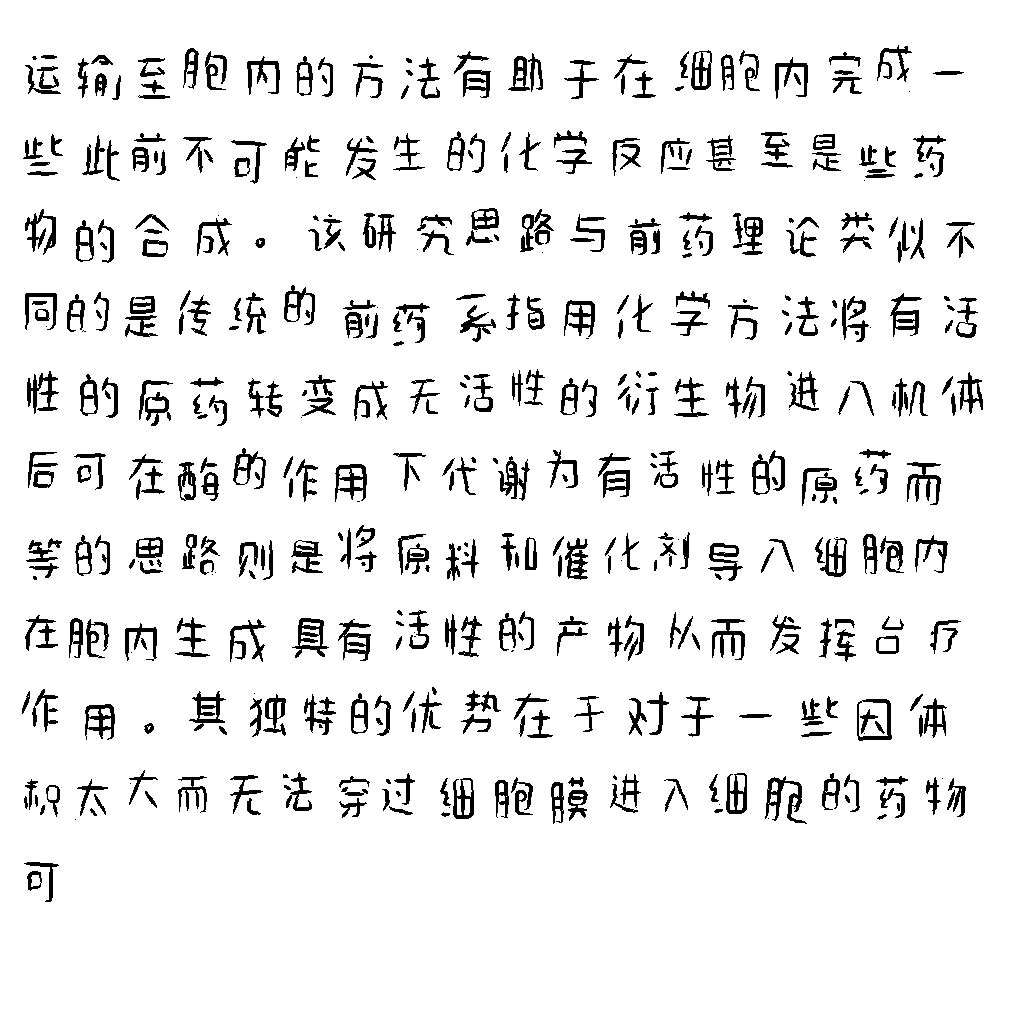 运输至胞内的方法有助于在细胞内完成一
些此前不可能发生的化学反应甚至是些药
物的合成。该研究思路与前药理论类似不
同的是传统的前药系指用化学方法将有活
性的原药转变成无活性的衍生物进入机体
后可在酶的作用下代谢为有活性的原药而
等的思路则是将原料和催化剂导入细胞内
在胞内生成具有活性的产物从而发挥台疗
作用。其独特的优势在于对于一些因体
积太大而无法穿过细胞膜进入细胞的药物
可